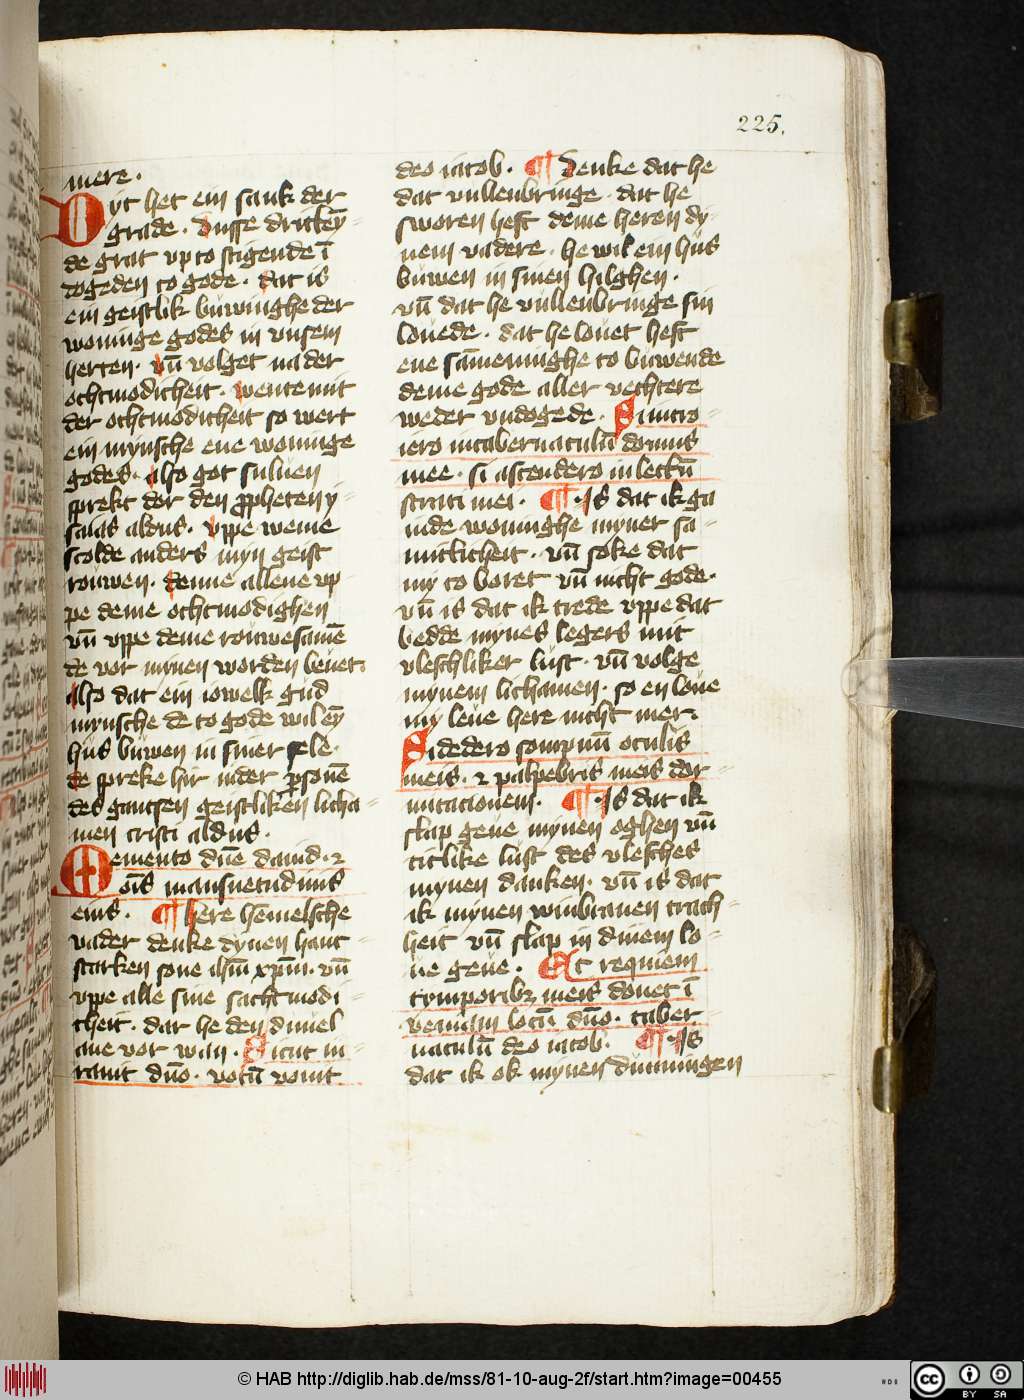 225.
mere.
Dyt het ein sank der
grade. Dusse dritteȳ-
de grat up to stigende ī
dogeden to gode. dat is
ein geistlik buwinghe der
woninge godes in unsem
herten. uñ volget na der
ochtmodicheit. wente mit
der ochtmodicheit so wert
ein mynsche ene woninge
godes. also got sulven
sprekt dor den ppheten y-
saias aldus. uppe weme
scolde anders myn geist
rouwen. denne allene up-
pe deme ochtmodighen
uñ uppe deme rouwesamē
de vor mynen worden bevet.
also dat ein iowelk gud
mynsche de to gode wil eȳ
hus buwen in siner sele.
de spreke hir in der psonē
des gantsen geistliken licha-
men cristi aldus.
Memento dñe david. ⁊
oīs mansuetudinis
eius. ¶ Here hēmelsche
vader denke dynen hant-
starken sone ihm̄ xpm̄. uñ
uppe alle sine sachtmodi-
cheit. dar he den duvel
ane vor wan. Sicut iu-
ravit dño. votū vovit
deo iacob. ¶ Denke dat he
dat vullenbringe. dat he
sworen heft deme heren dy-
nem vadere. he wil ein hus
buwen in sinen hilghen.
uñ dat he vullenbringe sin
lovede. dat he lovet heft
ene sāmeninghe to buwende
deme gode aller rechtere
weder undogede. Si intro-
iero in tabernaculū domus
mee. si ascendero in lectū
strati mei. ¶ Is dat ik ga
in de woninghe myner sa-
mitlicheit. uñ soke dat
my to boret uñ nicht gode.
uñ is dat ik trede uppe dat
bedde mynes legers mit
vleschliker lust. uñ volge
mynem lichamen. so en love
my leve here nicht mer.
Si dedero sompnū oculis
meis. ⁊ palpebris meis dor-
mitacionem. ¶ Is dat ik
slap geve mynen oghen uñ
titlike lust des vlesches
mynen danken. uñ is dat
ik mynen winbranen trach-
heit uñ slap in dinem lo-
ve geve. Et requiem
tymporibꝫ meis donec ī
veniam locū dño. taber-
naculū deo iacob. ¶ Is
dat ik ok mynen dunningen
© HAB http://diglib.hab.de/mss/81-10-aug-2f/start.htm?image=00455
BY SA